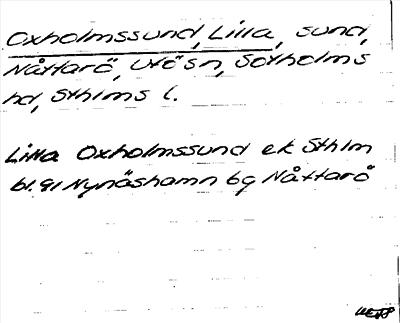 Oxholmssund, Lilla, sund,
Nåttarö, Utö sn, Sotholms
hd, Sthlms l.
Lilla Oxholmssund ek Sthlm
bl. 91 Nynäshamn 6g Nåttarö